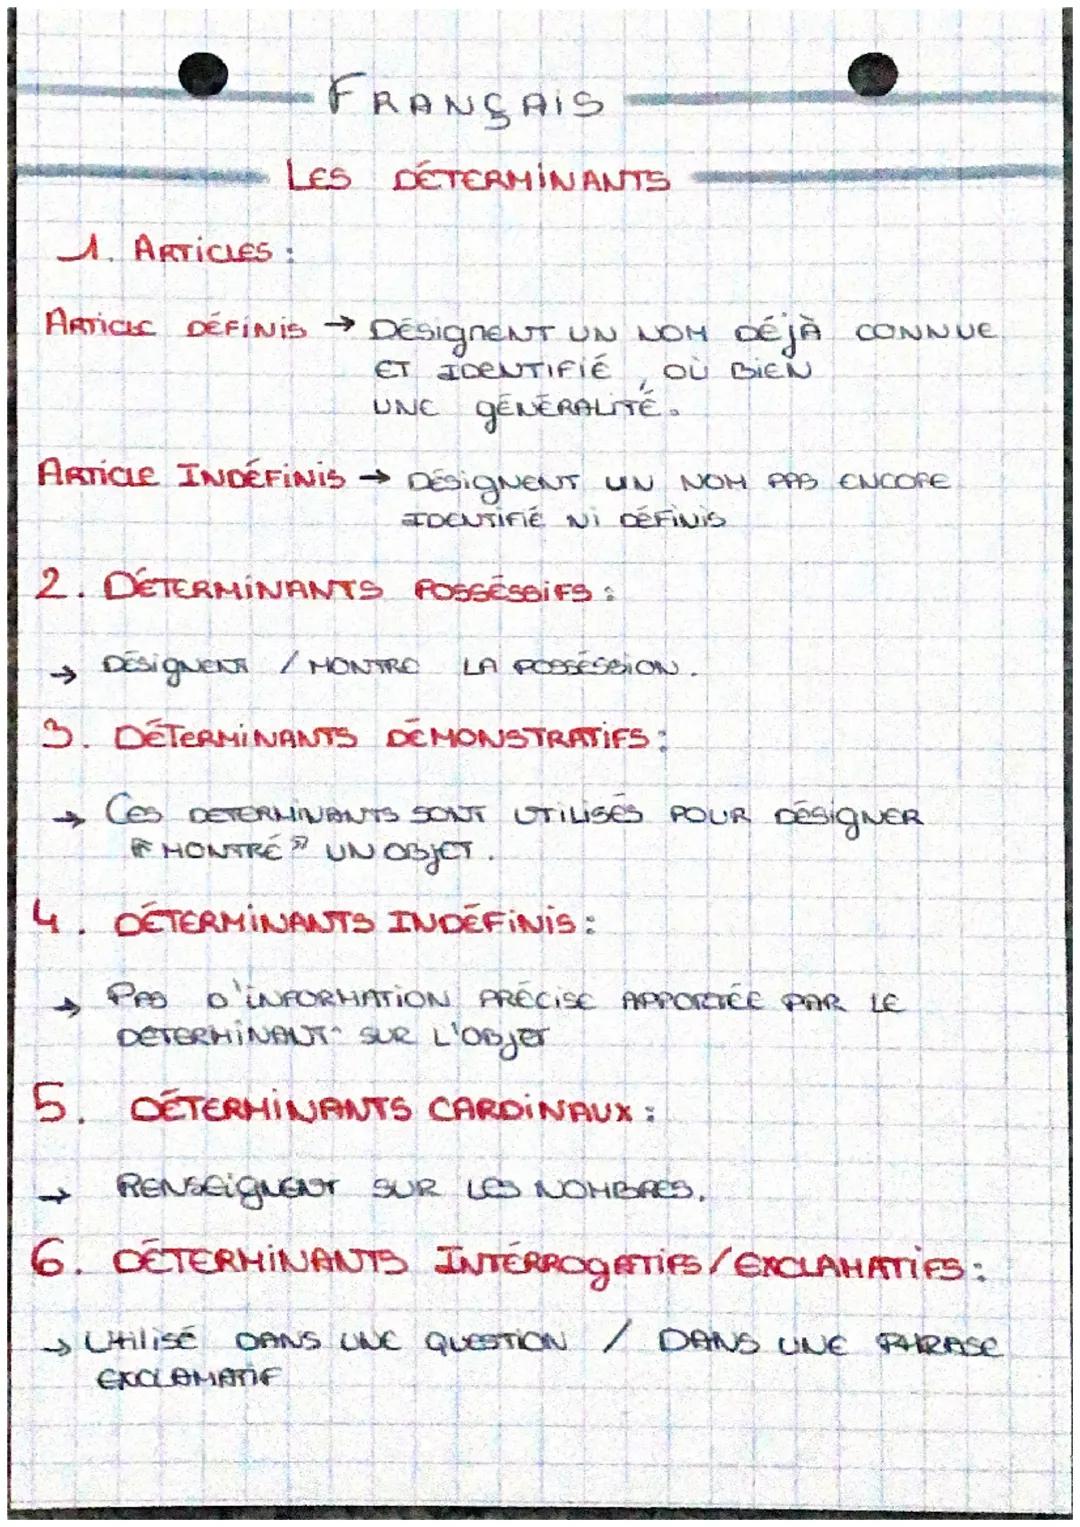 FRANÇAIS
LES DÉTERMINANTS
1. ARTICLES :
ARTICLE DÉFINIS → DÉSIGNENT UN NOM DÉJÀ CONNUE
ET IDENTIFIÉ, OÙ BIEN
UNE GÉNÉRALITÉ.
ARTICLE INDÉFINIS → DÉSIGNENT UN NOM PAS ENCORE
IDENTIFIÉ NI DÉFINIS
2. DÉTERMINANTS POSSÉSSIFS :
→ DÉSIGNENT / MONTRE LA POSSÉSSION.
3. DÉTERMINANTS DÉMONSTRATIFS :
→ CES DETERMINANTS SONT UTILISÉS POUR DÉSIGNER
" MONTRÉ " UN OBJET.
4. DÉTERMINANTS INDÉFINIS :
→ PAS D'INFORMATION PRÉCISE APPORTÉE PAR LE
DETERMINANT SUR L'OBJET
5. DÉTERMINANTS CARDINAUX :
→ RENSEIGNENT SUR LES NOMBRES.
6. DÉTERMINANTS INTÉRROGATIFS/EXCLAMATIFS :
→ UTILISÉ DANS UNE QUESTION / DANS UNE PHRASE
EXCLAMATIF